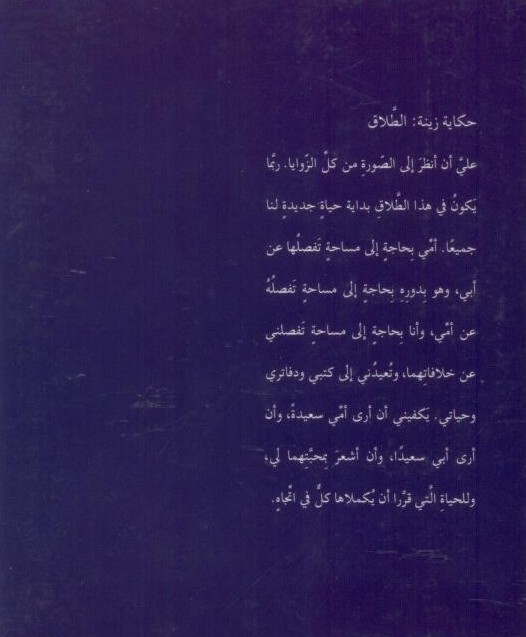 حكاية زينة: الطَّلاق
عليَّ أن أنظرَ إلى الصّورةِ من كلِّ الزّوايا. ربَّما
يَكونُ في هذا الطَّلاقِ بداية حياةٍ جديدةٍ لنا
جميعًا. أمّي بِحاجةٍ إلى مساحةٍ تَفصلُها عن
أبي، وهو بِدورِهِ بِحاجةٍ إلى مساحةٍ تَفصلُهُ
عن أمّي، وأنا بِحاجةٍ إلى مساحةٍ تَفصلني
عن خلافاتِهما، وتُعيدُني إلى كتبي ودفاتري
وحياتي. يَكفيني أن أرى أمّي سعيدةً، وأن
أرى أبي سعيدًا، وأن أشعرَ بِمحبَّتِهما لي،
وللحياةِ الَّتي قرَّرا أن يُكملاها كلٌّ في اتِّجاهٍ.